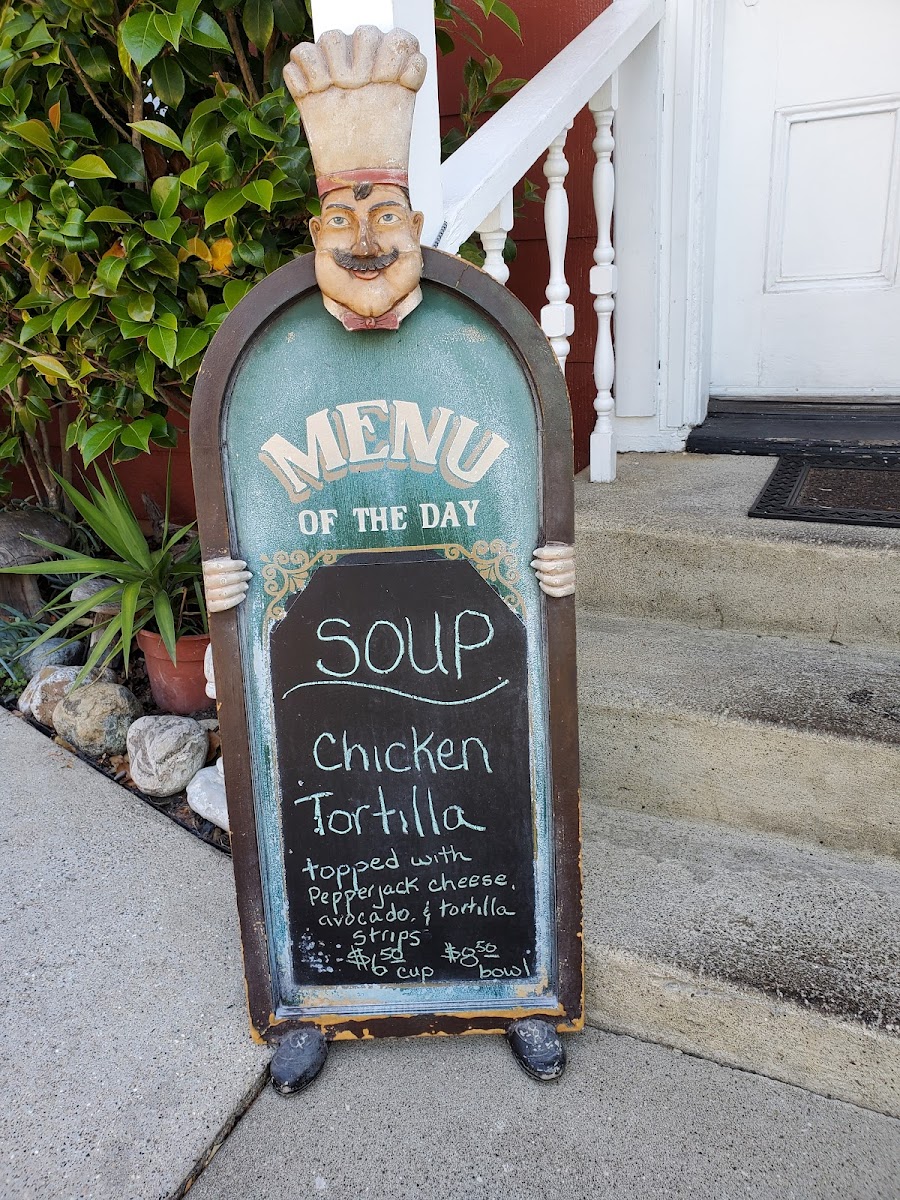 MENU
OF THE DAY
SOUP
Chicken
Tortilla
topped with
Pepperjack cheese,
avocado, & tortilla
strips
$6.50 cup $8.50 bowl